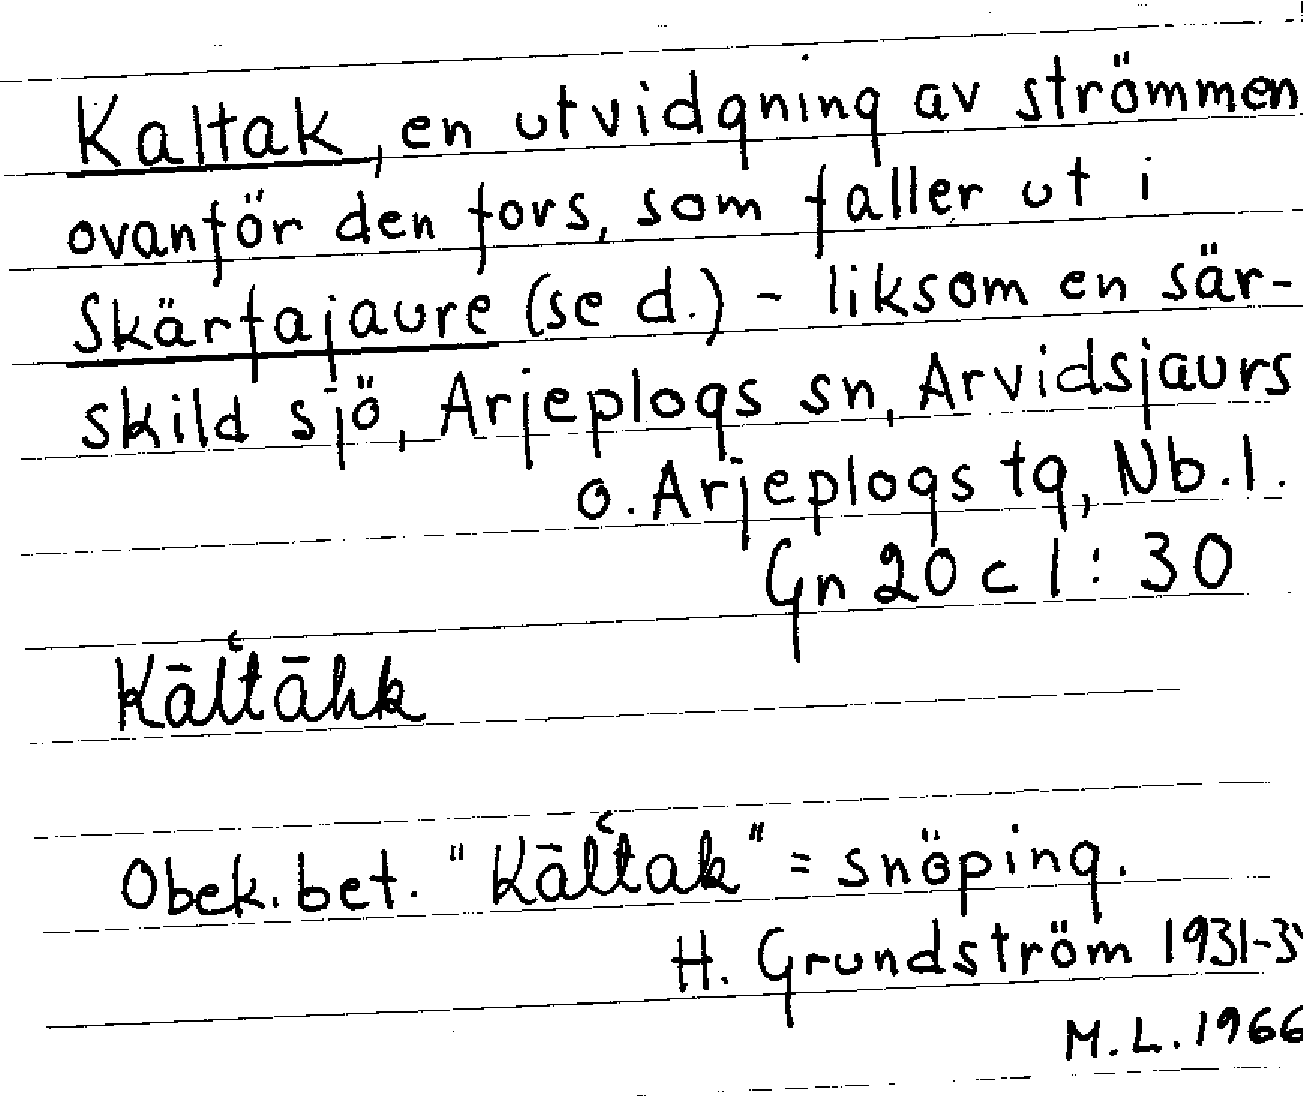 Kaltak, en utvidgning av strömmen
ovanför den fors, som faller ut i
Skärfajaure (se d.) - liksom en sär-
skild sjö, Arjeplogs sn, Arvidsjaurs
o. Arjeplogs tg, Nb.l.
Gn 20 c 1: 30
Kāltʿāhk
Obek. bet. "Kāltʿak" = snöping.
H. Grundström 1931-3
M.L. 1966